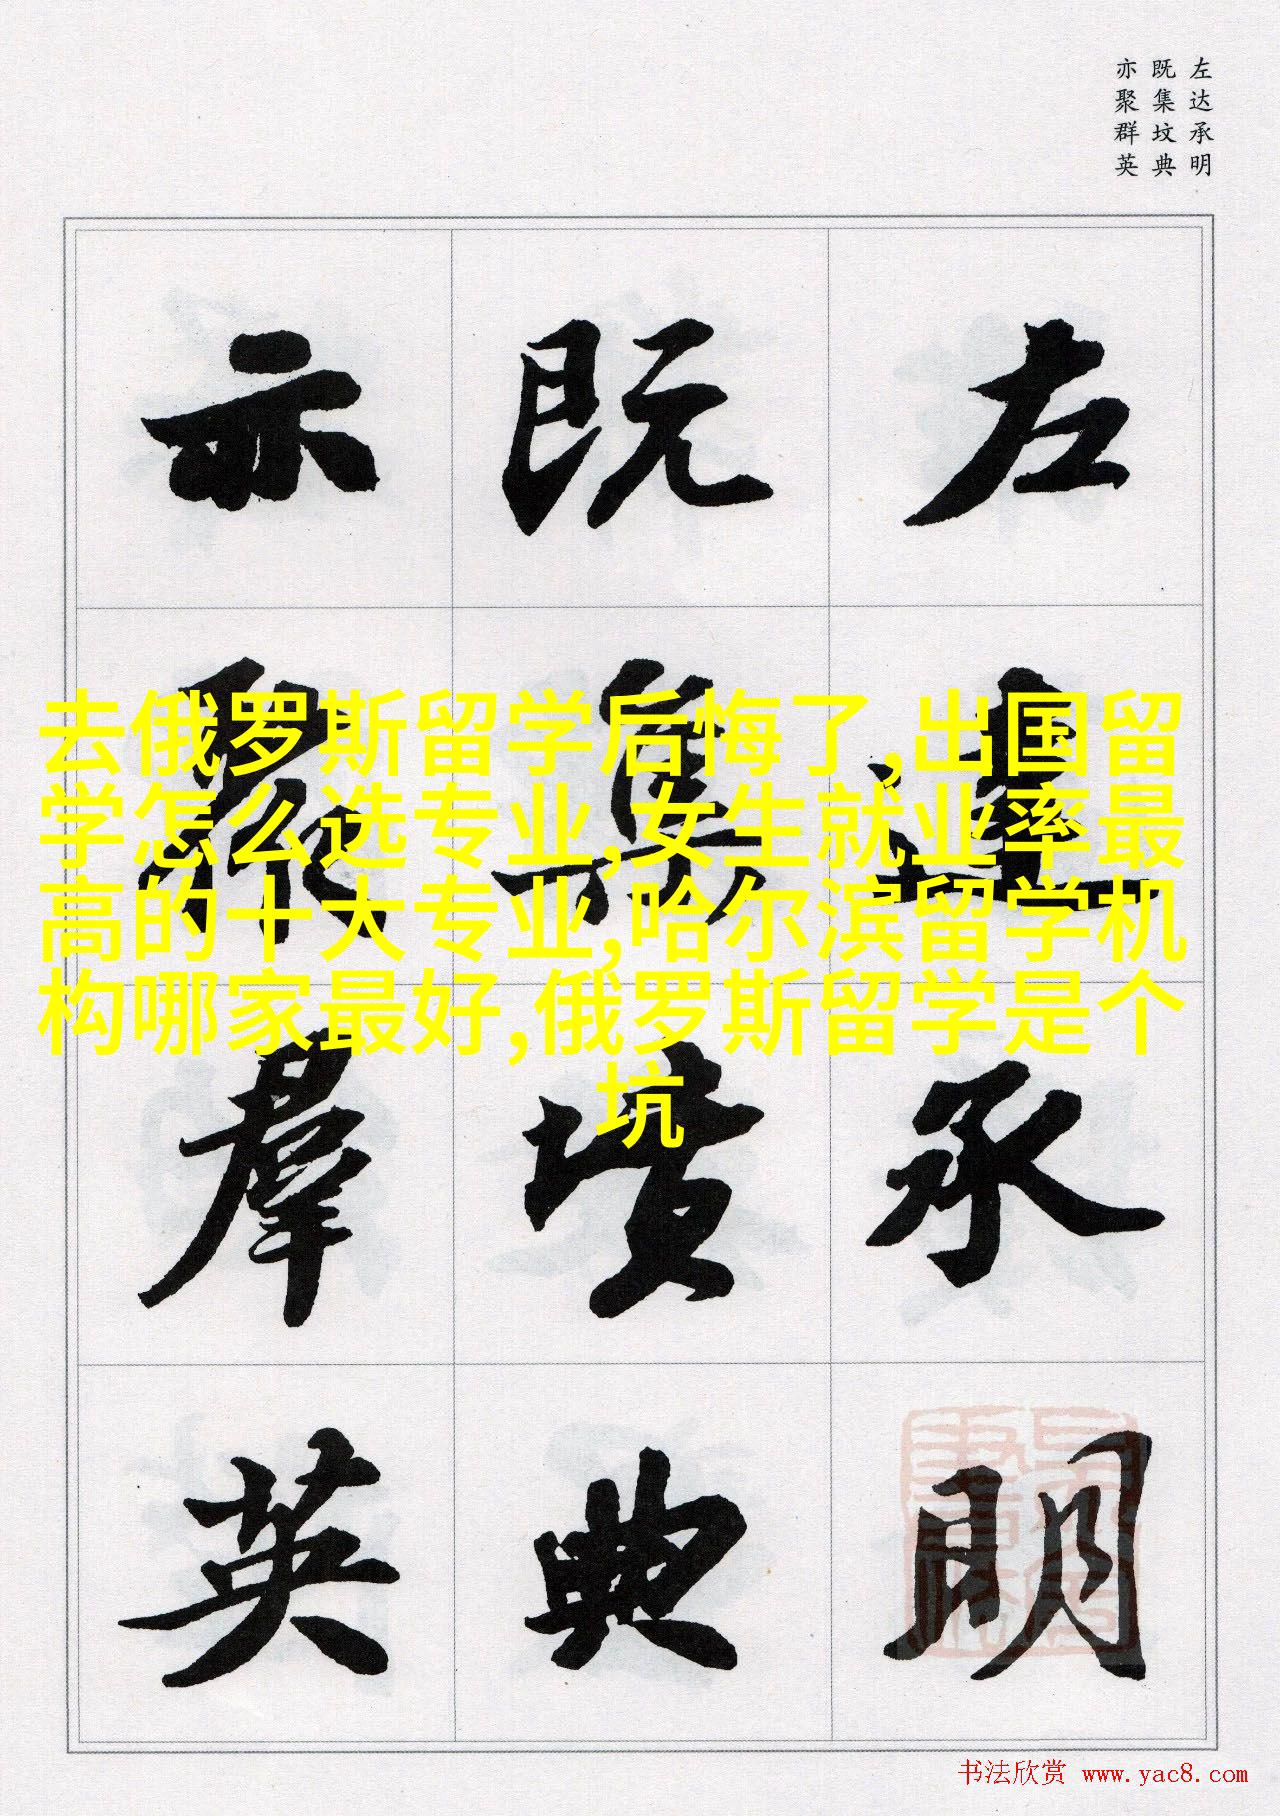 左达承明
既集坟典
亦聚群英
左達承明
既集墳典
亦聚羣英
去俄罗斯留学后悔了,出国留
学怎么选专业,女生就业率最
高的十大专业,哈尔滨留学机
构哪家最好,俄罗斯留学是个
坑
书法欣赏 www.yac8.com